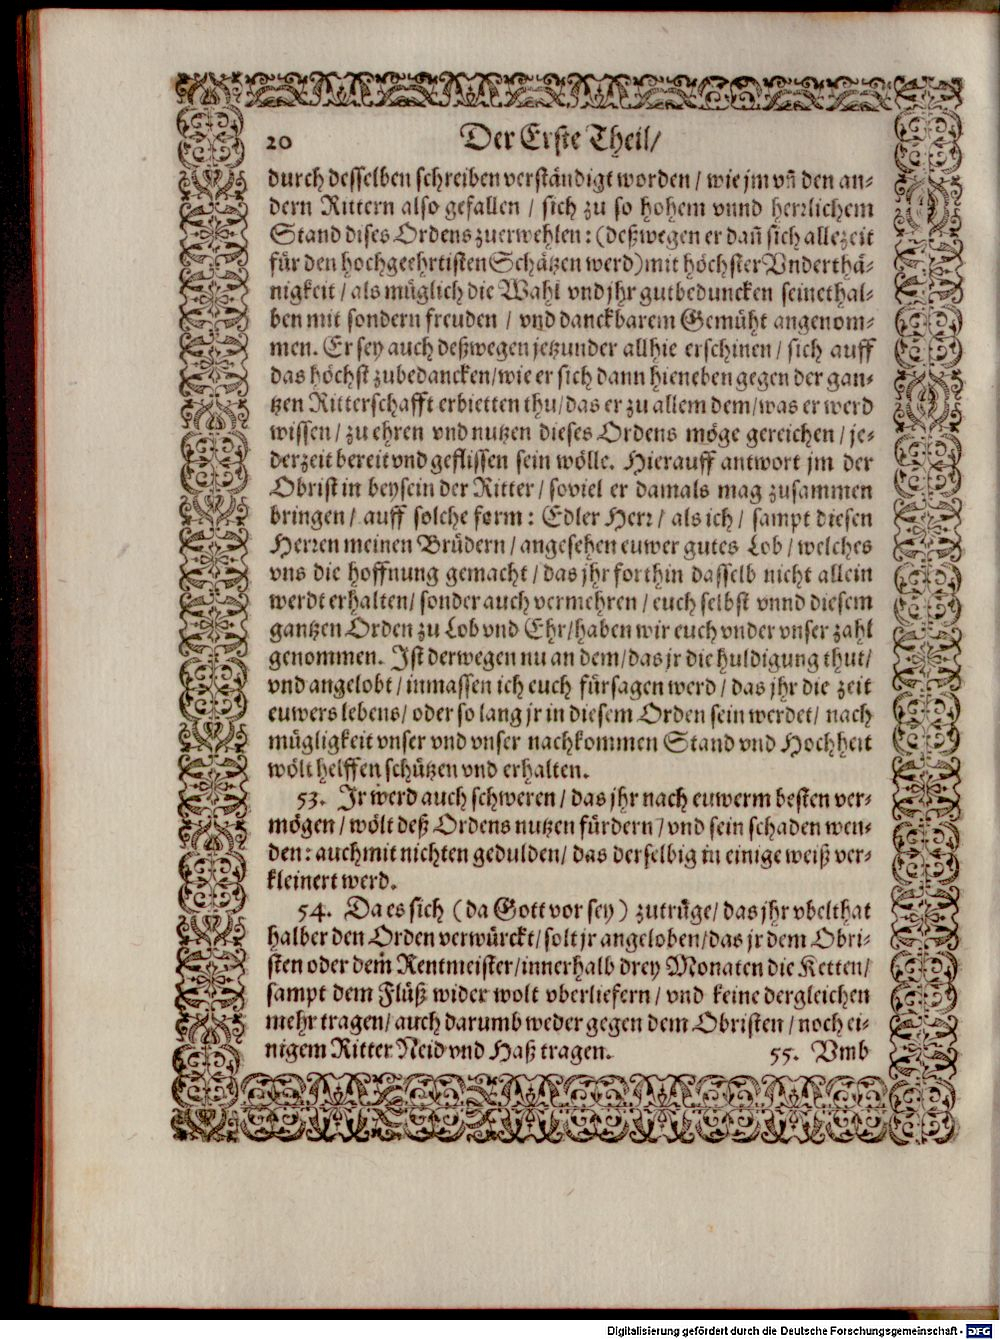 20 Der Erste Theil/
durch desselben schreiben verständigt worden / wie jm vñ den an-
dern Rittern also gefallen / sich zu so hohem vnnd herrlichem
Stand dises Ordens zuerwehlen: (deßwegen er dañ sich allezeit
für den hochgeehrtisten Schätzen werd) mit höchster Vnderthä-
nigkeit / als müglich die Wahl vnd jhr gutbeduncken seinethal-
ben mit sondern freuden / vnd danckbarem Gemüht angenom-
men. Er sey auch deßwegen jetzunder allhie erschinen / sich auff
das höchst zubedancken/ wie er sich dann hieneben gegen der gan-
tzen Ritterschafft erbietten thu/ das er zu allem dem/ was er werd
wissen / zu ehren vnd nutzen dieses Ordens möge gereichen / je-
derzeit bereit vnd geflissen sein wölle. Hierauff antwort jm der
Obrist in beysein der Ritter / soviel er damals mag zusammen
bringen / auff solche form: Edler Herr / als ich / sampt diesen
Herren meinen Brüdern / angesehen euwer gutes Lob / welches
vns die hoffnung gemacht / das jhr forthin dasselb nicht allein
werdt erhalten/ sonder auch vermehren / euch selbst vnnd diesem
gantzen Orden zu Lob vnd Ehr/ haben wir euch vnder vnser zahl
genommen. Ist derwegen nu an dem/ das jr die huldigung thut/
vnd angelobt / inmassen ich euch fürsagen werd / das jhr die zeit
euwers lebens/ oder so lang jr in diesem Orden sein werdet/ nach
mügligkeit vnser vnd vnser nachkommen Stand vnd Hochheit
wölt helffen schützen vnd erhalten.
53. Ir werd auch schweren / das jhr nach euwerm besten ver-
mögen / wölt deß Ordens nutzen fürdern / vnd sein schaden wen-
den: auch mit nichten gedulden/ das derselbig in einige weiß ver-
kleinert werd.
54. Da es sich (da Gott vor sey) zutrüge/ das jhr vbelthat
halber den Orden verwürckt/ solt jr angeloben/ das jr dem Obri-
sten oder dem̃ Rentmeister/ innerhalb drey Monaten die Ketten/
sampt dem Flüß wider wolt vberliefern / vnd keine dergleichen
mehr tragen/ auch darumb weder gegen dem Obristen / noch ei-
nigem Ritter Neid vnd Haß tragen. 55. Vmb
Digitalisierung gefördert durch die Deutsche Forschungsgemeinschaft - DFG